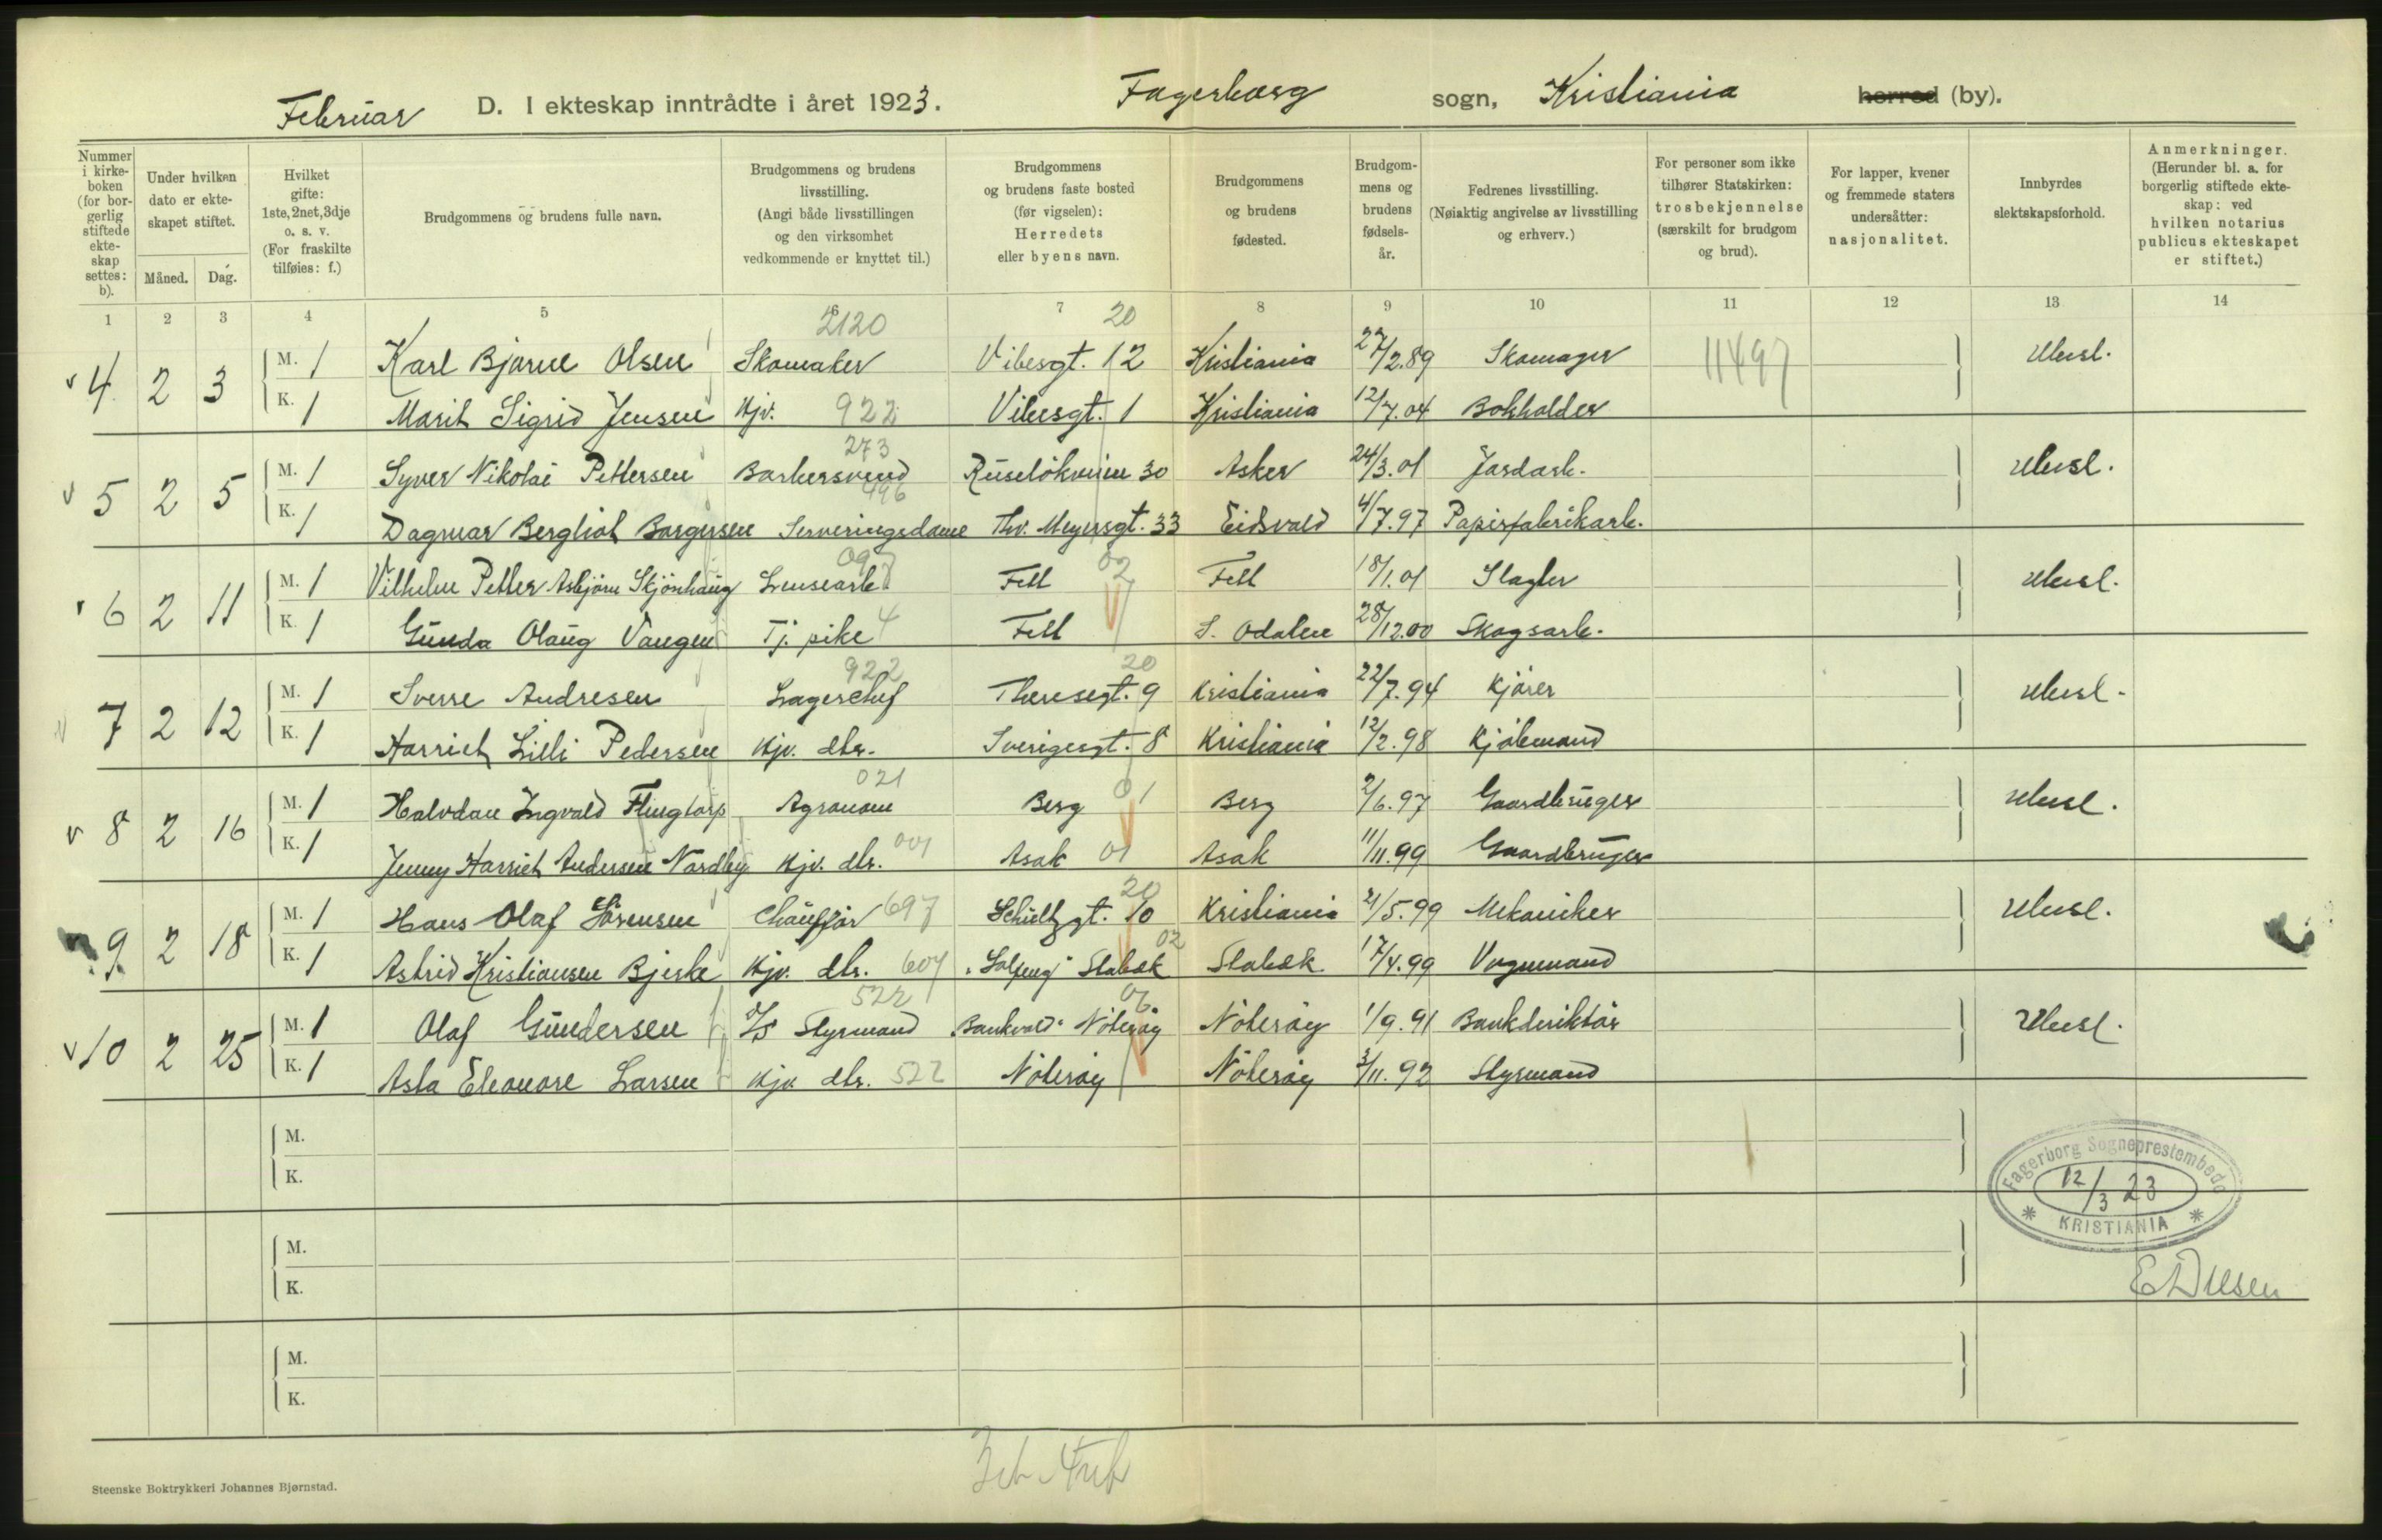 Februar D. I ekteskap inntrådte i året 1923. Fagerborg sogn, Kristiania herred (by).
Nummer i kirke-boken (for bor-gerlig stiftede ekte-skap settes: b).
Under hvilken dato er ekte-skapet stiftet.
Måned. Dag.
Hvilket gifte: 1ste, 2net, 3dje o. s. v. (For fraskilte tilføies: f.)
Brudgommens og brudens fulle navn.
Brudgommens og brudens livsstilling. (Angi både livsstillingen og den virksomhet vedkommende er knyttet til.)
Brudgommens og brudens faste bosted (før vigselen): Herredets eller byens navn.
Brudgommens og brudens fødested.
Brudgom-mens og brudens fødsels-år.
Fedrenes livsstilling. (Nøiaktig angivelse av livsstilling og erhverv.)
For personer som ikke tilhører Statskirken: trosbekjennelse (særskilt for brudgom og brud).
For lapper, kvener og fremmede staters undersåtter: nasjonalitet.
Innbyrdes slektskapsforhold.
Anmerkninger. (Herunder bl. a. for borgerlig stiftede ekte-skap: ved hvilken notarius publicus ekteskapet er stiftet.)
1 2 3 4 5 6 7 8 9 10 11 12 13 14
2120 20
v 4 2 3 M. 1 Karl Bjarne Olsen Skomaker Vibesgt. 12 Kristiania 27/2.89 Skomager 11497 Ubesl.
K. 1 Marit Sigrid Jensen Hjv. 922 Vibesgt. 1 Kristiania 12/7.04 Bokholder
273
v 5 2 5 M. 1 Syver Nikolai Pettersen Barbersvend Ruseløkveien 30 Asker 24/3.01 Jordarb. Ubesl.
496
K. 1 Dagmar Bergliot Borgersen Serveringsdame Thv. Meyersgt. 33 Eidsvold 4/7.97 Papirfabrikarb.
097 02
v 6 2 11 M. 1 Vilhelm Petter Asbjörn Skjönhaug Lensearb. Fet Fet 18/1.01 Slagter Ubesl.
K. 1 Gunda Olaug Vangen Tj. pike 4 Fet S. Odalen 28/12.00 Skogsarb.
922 20
v 7 2 12 M. 1 Sverre Andresen Lagerchef Theresegt. 9 Kristiania 22/7.94 Kjører Ubesl.
K. 1 Harriet Lilli Pedersen Hjv. dtr. Sverigesgt. 8 Kristiania 12/2.98 Kjøbmand
021
v 8 2 16 M. 1 Halvdan Ingvald Flingtorp Agronom Berg 01 Berg 2/6.97 Gaardbruger Ubesl.
K. 1 Jenny Harriet Andersen Nordby Hjv. dtr. 001 Asak 01 Asak 11/11.99 Gaardbruger
20
9 2 18 M. 1 Hans Olaf Sörensen Chauffør 697 Schultzgt. 10 Kristiania 21/5.99 Mekaniker Ubesl.
02
K. 1 Astrid Kristiansen Bjerke Hjv. dtr. 607 "Solfeng" Stabæk Stabæk 17/4.99 Vognmand
522 06
v 10 2 25 M. 1 Olaf Gundersen Styrmand Bankvold Nöterøy Nöterøy 1/9.91 Bankdirektør Ubesl.
K. 1 Asta Eleonore Larsen Hjv. dtr. 522 Nöterøy Nöterøy 3/11.92 Styrmand
M.
K.
M.
K.
M.
K.
Fagerborg Sogneprestembede
12/3 23
KRISTIANIA
Steenske Boktrykkeri Johannes Bjørnstad.